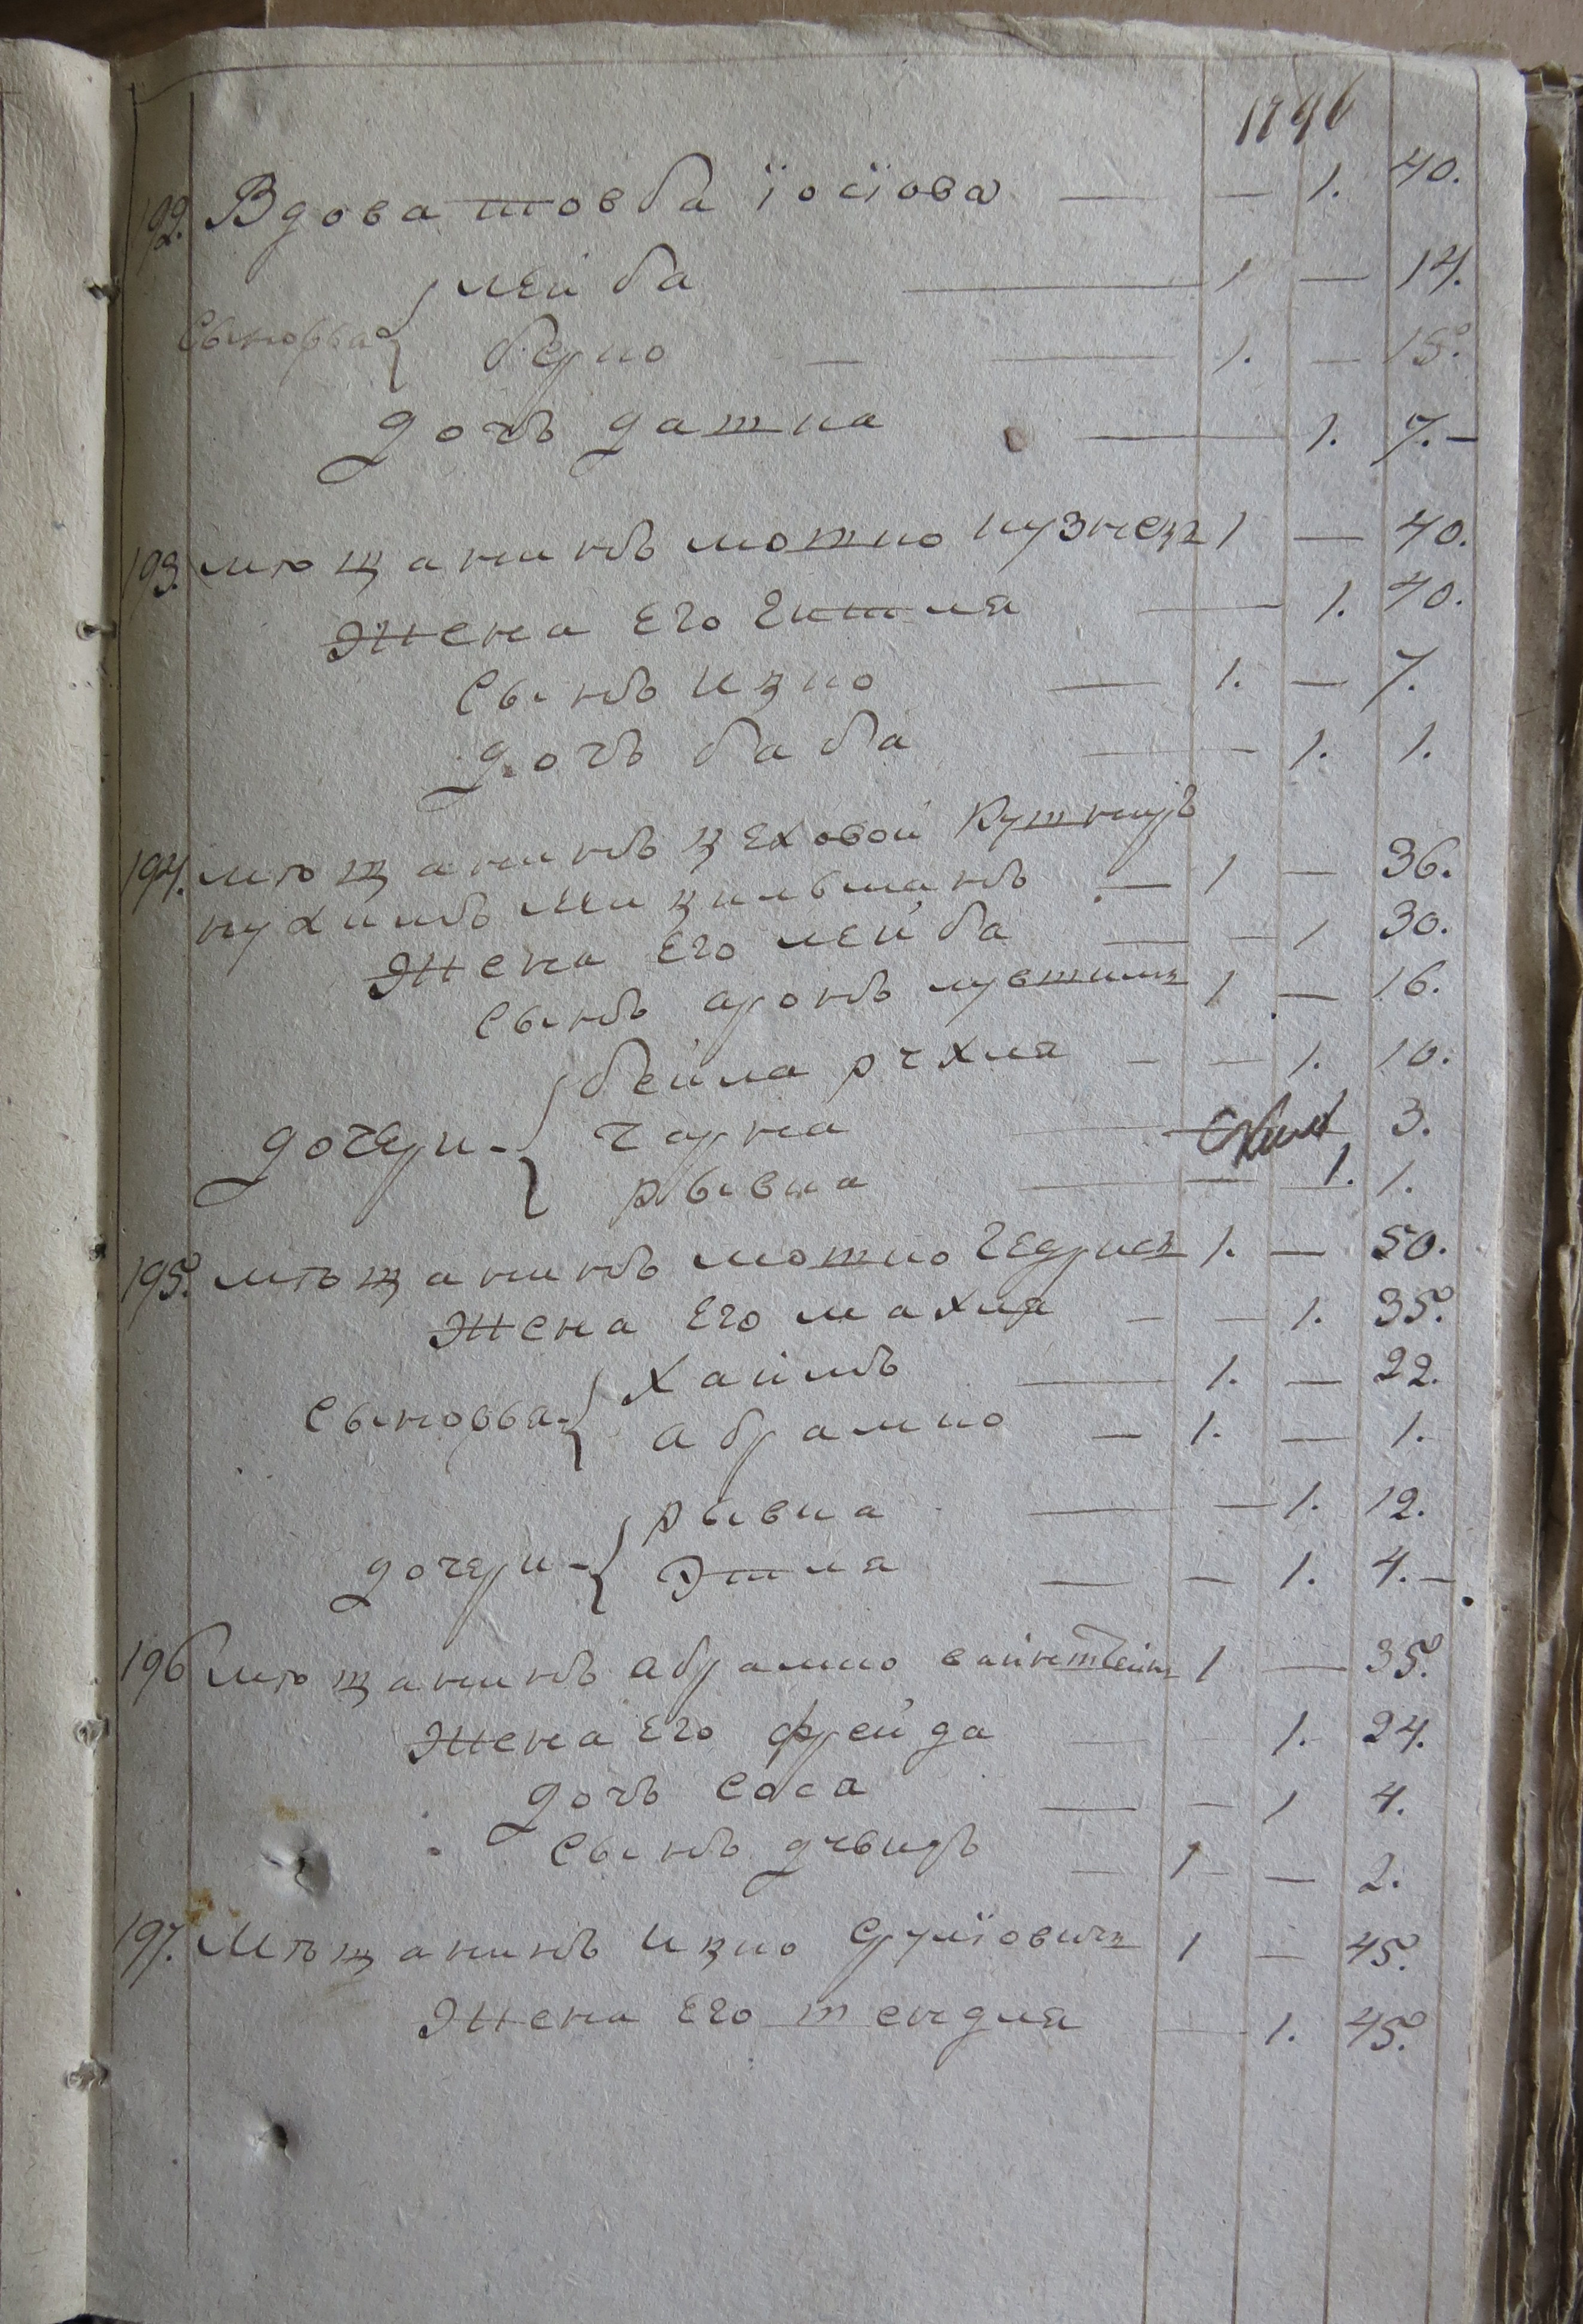 1796
192. Вдова товба їосїова — — 1. 40.
лейба — 1 — 14.
Сыновья { берко — — 1. — 15.
дочь датка — 1. 7. —
193. мѣщанинъ мотко кузнецъ 1 — 40.
Жена Его гитля — 1. 40.
Сынъ ицко — 1. — 7.
дочь баба — 1. 1.
194. мѣщанинъ цеховой
нухимъ — 1 — 36.
Жена Его лейба — — 1 30.
Сынъ аронъ 1 — 16.
бейла рухля — — 1. 10.
дочери { чарна — 3.
рывка — — 1. 1.
195. мѣщанинъ мотко 1. — 50.
Жена Его махля — — 1. 35.
Хаимъ — 1. — 22.
Сыновья { абрамко — 1. — 1.
рывка — — 1. 12.
дочери { Этля — — 1. 4. —
196 мѣщанинъ абрамко 1 — 35.
Жена Его фрейда — 1. 24.
дочь Соса — — 1 4.
Сынъ — 1 — 2.
197. Мѣщанинъ ицко 1 — 45.
Жена Его тендля — 1. 45.